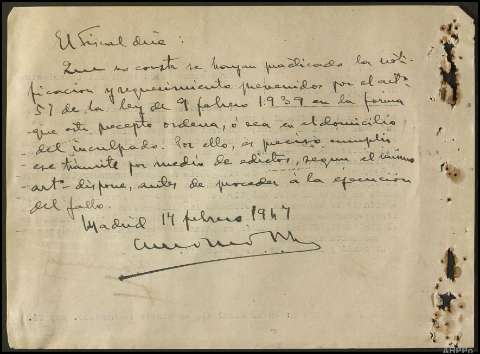 El Fiscal dice:
Que no consta se hayan practicado la noti-
ficacion y requerimiento prevenidos por el artº
57 de la ley de 9 febrero 1939 en la forma
que este precepto ordena, ó sea en el domicilio
del inculpado. Por ello, es preciso cumplir
ese trámite por medio de edictos, segun el mismo
artº dispone, antes de proceder á la ejecucion
del fallo.
Madrid 14 febrero 1947
AHPPo